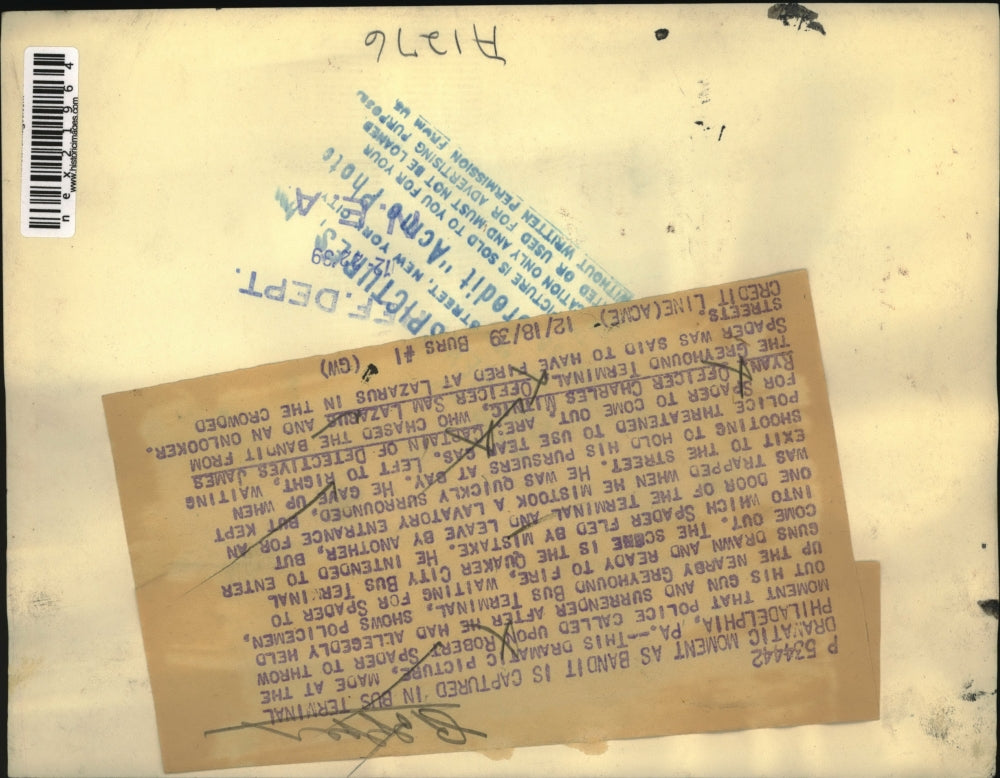 A1276
nex21964
www.historicimages.com
PICTURE IS SOLD TO YOU FOR YOUR
ATION ONLY AND MUST NOT BE LOANED
OR USED FOR ADVERTISING PURPOSE
WITHOUT WRITTEN PERMISSION FROM US
Credit "Acme Photo
PICTURES
STREET, NEW YORK CITY
DEPT.
P 534442
DRAMATIC MOMENT AS BANDIT IS CAPTURED IN BUS TERMINAL
PHILADELPHIA, PA.--THIS DRAMATIC PICTURE, MADE AT THE
MOMENT THAT POLICE CALLED UPON ROBERT SPADER TO THROW
OUT HIS GUN AND SURRENDER AFTER HE HAD ALLEGEDLY HELD
UP THE NEARBY GREYHOUND BUS TERMINAL, SHOWS POLICEMEN,
GUNS DRAWN AND READY TO FIRE, WAITING FOR SPADER TO
COME OUT. THE SCENE IS THE QUAKER CITY BUS TERMINAL
INTO WHICH SPADER FLED BY MISTAKE. HE INTENDED TO ENTER
ONE DOOR OF THE TERMINAL AND LEAVE BY ANOTHER, BUT
WAS TRAPPED WHEN HE MISTOOK A LAVATORY ENTRANCE FOR AN
EXIT TO THE STREET. HE WAS QUICKLY SURROUNDED, BUT KEPT
SHOOTING TO HOLD HIS PURSUERS AT BAY. HE GAVE UP WHEN
POLICE THREATENED TO USE TEAR GAS. LEFT TO RIGHT, WAITING
FOR SPADER TO COME OUT ARE: CAPTAIN OF DETECTIVES JAMES
RYAN, OFFICER CHARLES MIZIC, WHO CHASED THE BANDIT FROM
THE GREYHOUND TERMINAL, OFFICER SAM LAZARUS AND AN ONLOOKER.
SPADER WAS SAID TO HAVE FIRED AT LAZARUS IN THE CROWDED
STREETS.
CREDIT LINE(ACME) 12/18/39 BURS #1 (GW)